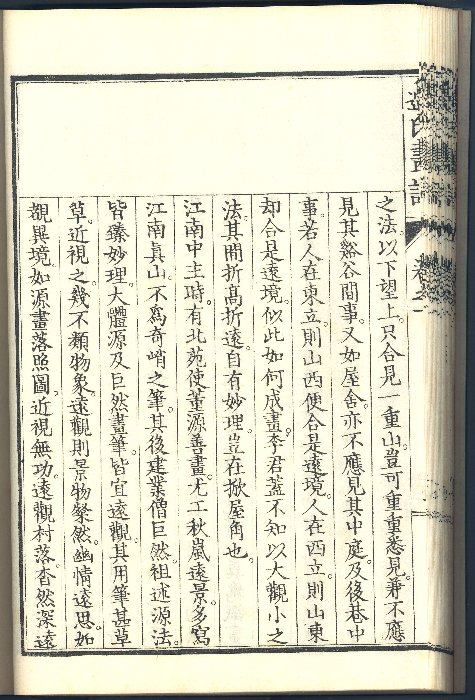 之法以下望上。只合見一重山。豈可重重悉見。兼不應
見其谿谷間事。又如屋舍亦不應見其中庭。及後巷中
事。若人在東立則山西便合是遠境。人在西立。則山東
却合是遠境。似此如何成畫。李君蓋不知以大觀小之
法。其間折高折遠。自有妙理。豈在掀屋角也。
江南中主時。有北苑使董源善畫。尤工秋嵐遠景。多寫
江南真山。不為奇峭之筆。其後建業僧巨然。祖述源法。
皆臻妙理。大體源及巨然畫筆。皆宜遠觀。其用筆甚草
草。近視之。幾不類物象。遠觀則景物粲然。幽情遠思。如
覩異境。如源畫落照圖。近視無功。遠觀村落。杳然深遠
畫譜
卷之